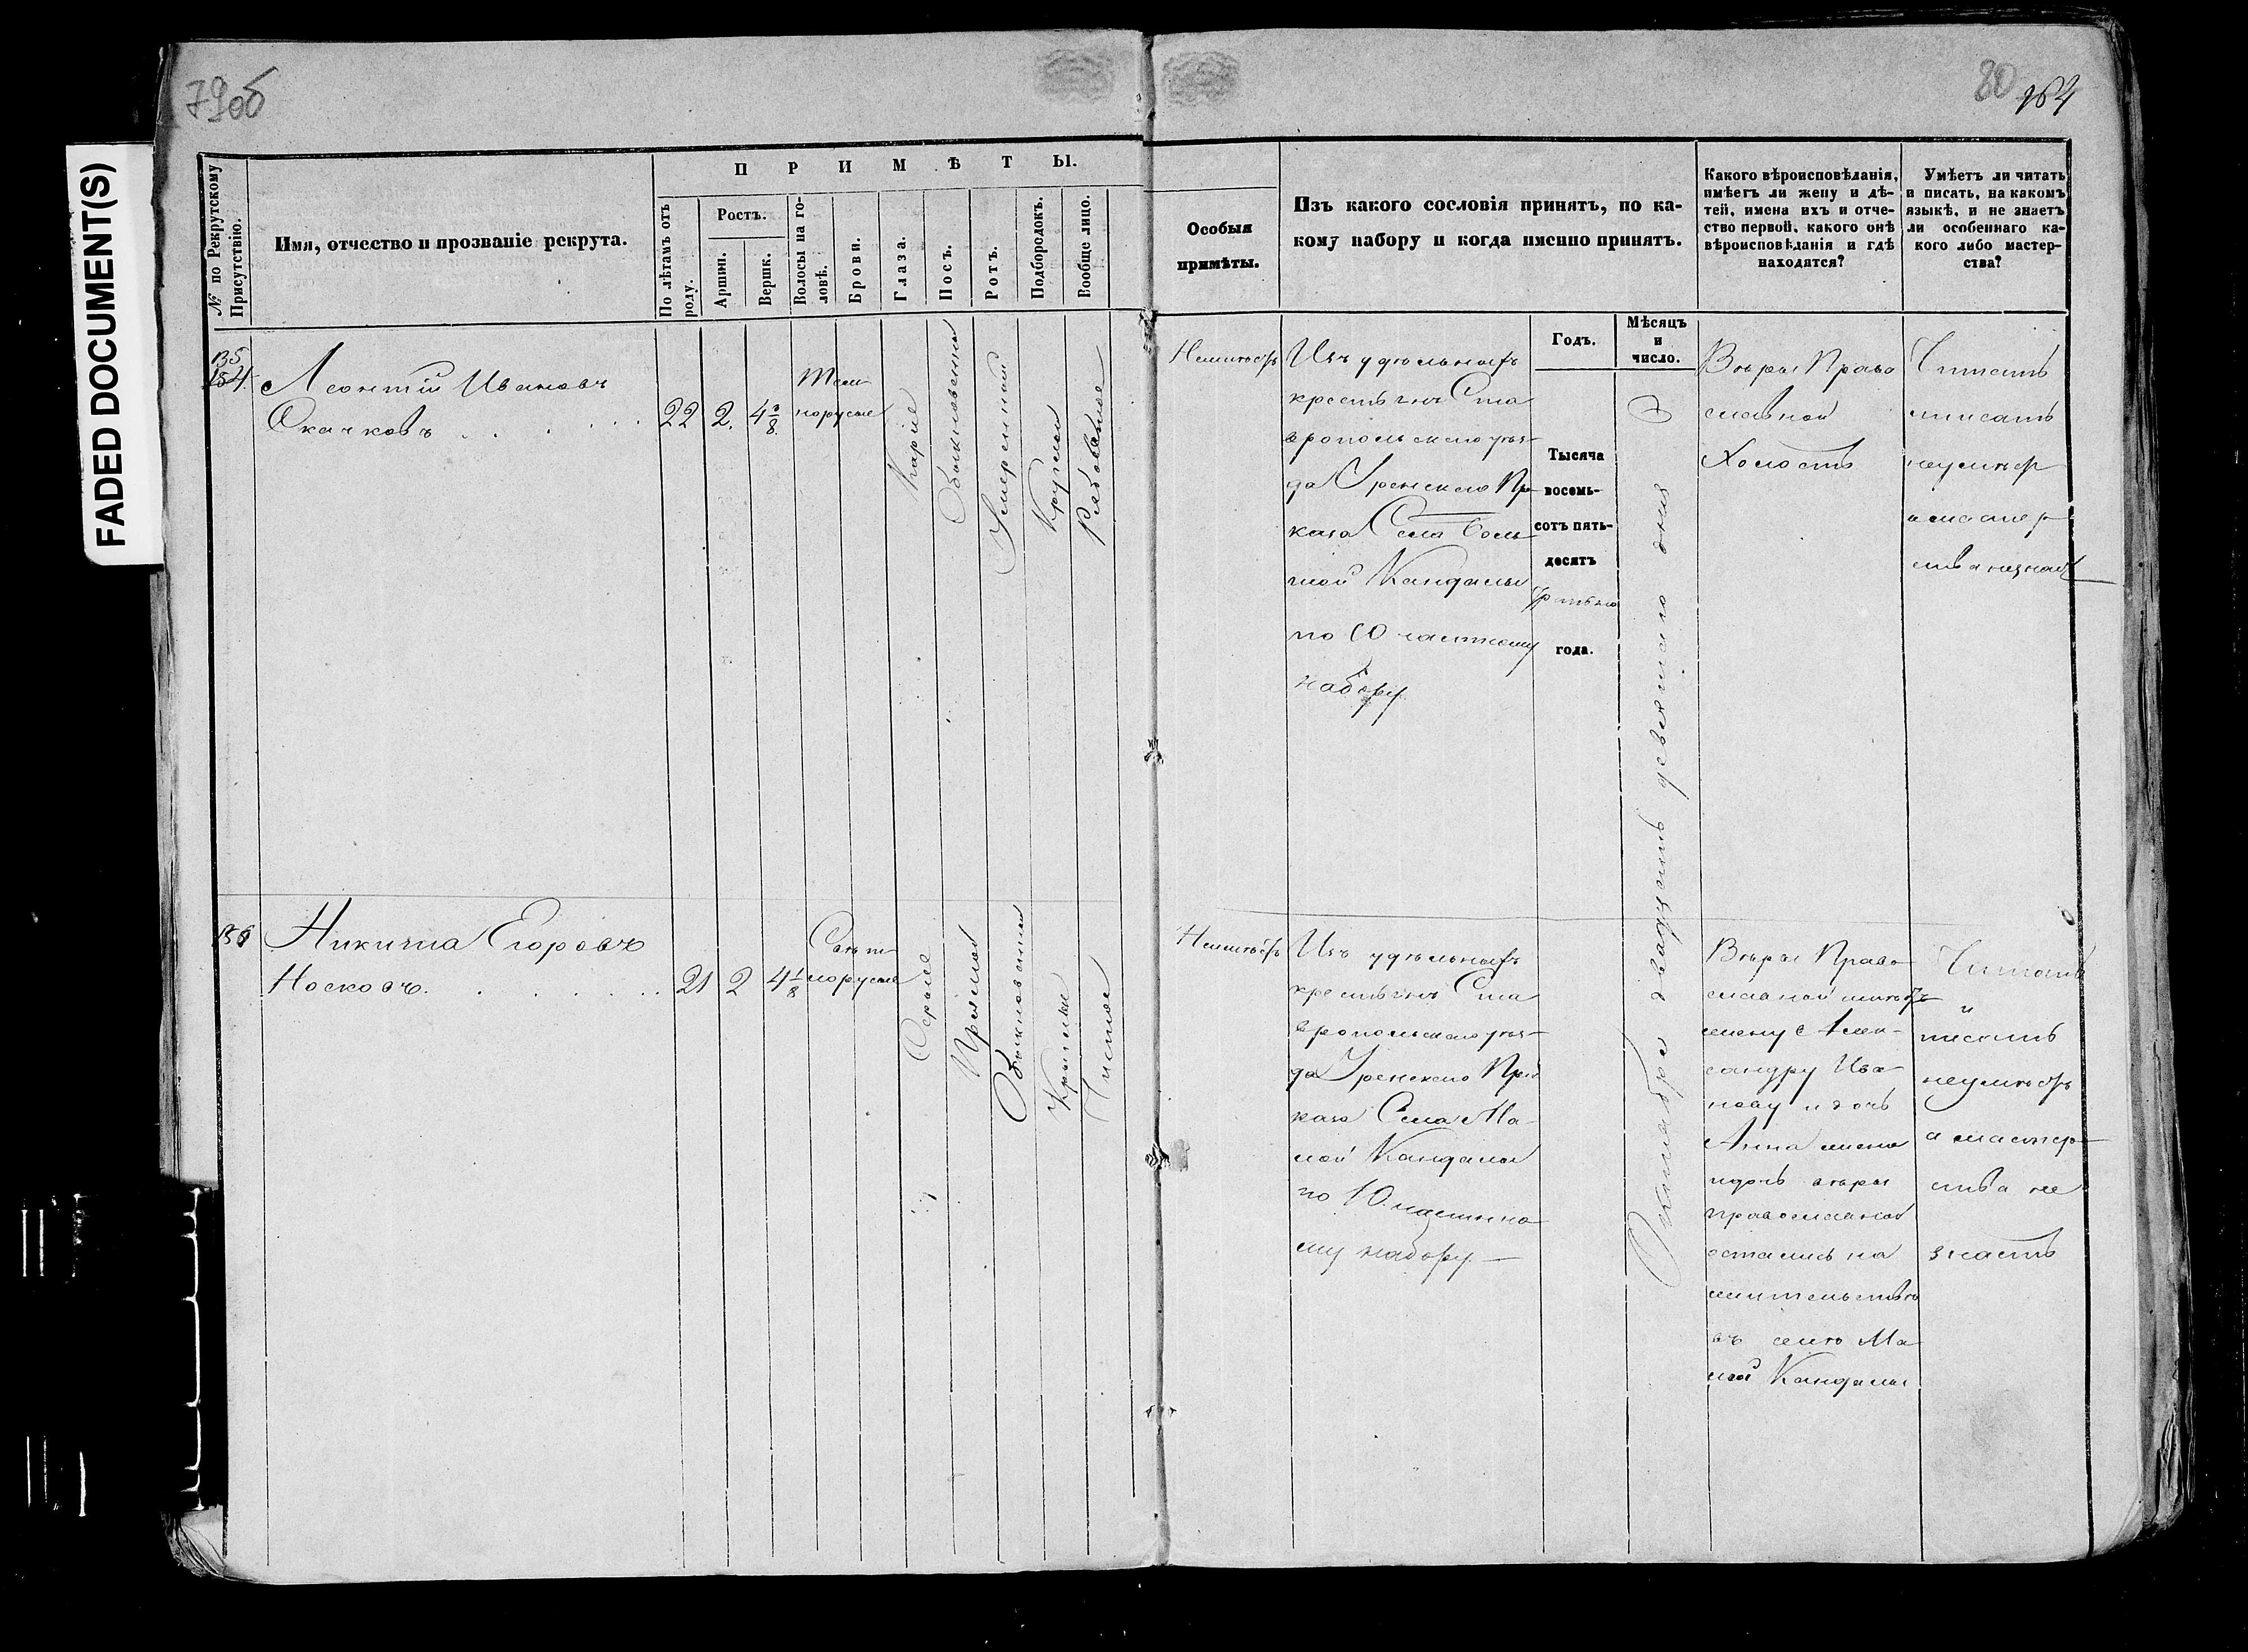 79об
80
164
FADED DOCUMENT(S)
№ по Рекрутскому
Присутствію.
Имя, отчество и прозваніе рекрута.
ПРИМѢТЫ.
По лѣтамъ отъ
роду.
Ростъ.
Аршин.
Вершк.
Волосы на го-
ловѣ.
Брови.
Глаза.
Носъ.
Ротъ.
Подбородокъ.
Вообще лицо.
Особыя
примѣты.
Изъ какого сословія принятъ, по ка-
кому набору и когда именно принятъ.
Годъ.
Мѣсяцъ
и
число.
Какого вѣроисповѣданія,
имѣетъ ли жену и дѣ-
тей, имена ихъ и отче-
ство первой, какого онѣ
вѣроисповѣданія и гдѣ
находятся?
Умѣетъ ли читать
и писать, на какомъ
языкѣ, и не знаетъ
ли особеннаго ка-
кого либо мастер-
ства?
135
Леонтій Ивановъ
Скачковъ
22
2.
4 3/8
Тем-
норусые
Каріе
Обыкновенный
Умеренный
Круглый
Рябоватое
Неимѣетъ
Изъ удѣльныхъ
крестьянъ Ста
вропольскаго уѣз-
да Уренскаго При
каза Села Боль
шой Кандалы
по 10 частному
набору
Тысяча
восемь-
сотъ пять-
десятъ
третьяго
года.
Октября двадцать девятаго дня
Вѣры Право
славной
Холостъ
Читать
и писать
неумѣетъ
а мастер
ства незнаетъ
136
Никита Егоровъ
Носковъ.
21
2
4 1/8
Свѣт-
лорусые
Серые
Прямой
Обыкновенный
Круглый
Чистое
Неимѣетъ
Изъ удѣльныхъ
крестьянъ Ста
вропольскаго уѣз-
да Уренскаго При
каза Села Ма-
лой Кандалы
по 10 частно
му набору
Вѣры Право-
славной имѣетъ
жену Алек-
сандру Ива-
нову и дочь
Анна жена
и дочь вѣры
православной
остались на
жительствѣ
въ селѣ Ма
лой Кандалы
Читать
и
писать
неумѣетъ
а мастер-
ства не
знаетъ